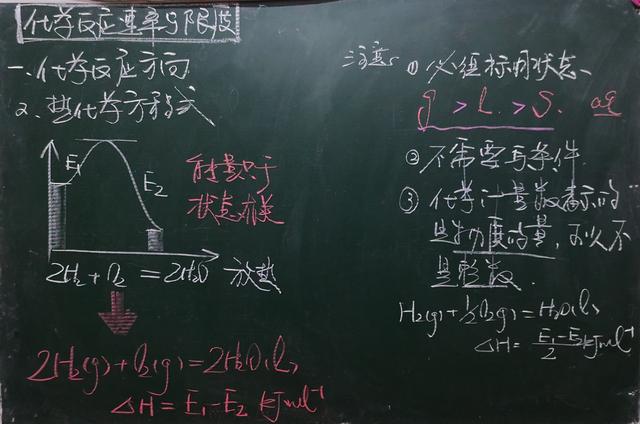 化学反应速率与限度
一、化学反应方向
2、热化学方程式
E₁
E₂
能量只于
状态有关
2H₂ + O₂ = 2H₂O 放热
2H₂(g) + O₂(g) = 2H₂O(l)
△H = E₁-E₂ kJmol⁻¹
注意:
① 必须标明状态、
g > L > S. aq
② 不需要写条件
③ 化学计量数表示的
是物质的量,可以不
是整数.
H₂(g)+½O₂(g)=H₂O(l)
△H= E₁-E₂/2 kJmol⁻¹